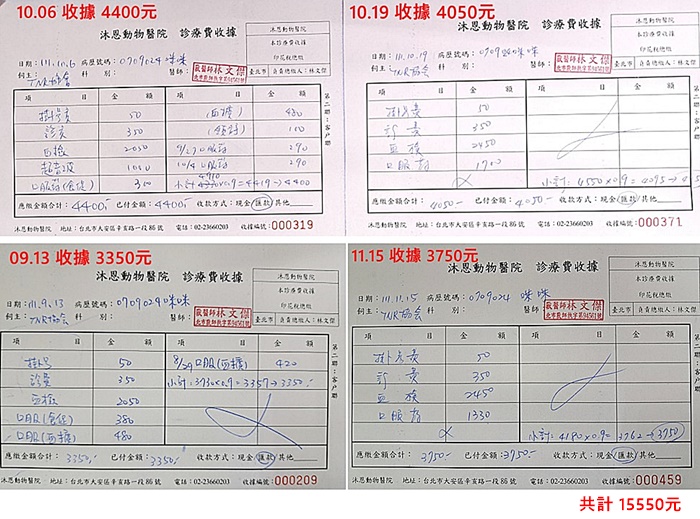 10.06 收據 4400元
沐恩動物醫院 診療費收據
沐恩動物醫院
本診療費收據
印花稅總繳
日期：111.10.6 病歷號碼：0709024 咪咪
飼主：TNR協會 科別： 醫師：
獸醫師 林文傑
臺北市 負責總繳人：林文傑
項目 金額 項目 金額
掛號費 50 (血檢) 480
診費 350 100
血檢 2050 9/27 口服藥 290
超音波 1010 10/4 口服藥 290
口服藥 300 ×0.9=4419→4400
應繳金額合計：4400- 已付金額：4400- 收款方式：現金/匯款/其他
沐恩動物醫院 地址：台北市大安區辛亥路一段86號 電話：02-23660203 收據編號：000319
第二聯：客戶聯
10.19 收據 4050元
沐恩動物醫院 診療費收據
沐恩動物醫院
本診療費收據
印花稅總繳
日期：111.10.19 病歷號碼：0709024 咪咪
飼主：TNR協會 科別： 醫師：
獸醫師 林文傑
臺北市 負責總繳人：林文傑
項目 金額 項目 金額
掛號費 50
診費 350
血檢 2450
口服藥 1700
小計：4550×0.9=4095→
應繳金額合計：4050- 已付金額：4050- 收款方式：現金/匯款/其他
沐恩動物醫院 地址：台北市大安區辛亥路一段86號 電話：02-23660203 收據編號：000371
第二聯：客戶聯
09.13 收據 3350元
沐恩動物醫院 診療費收據
沐恩動物醫院
本診療費收據
印花稅總繳
日期：111.9.13 病歷號碼：0709024 咪咪
飼主：TNR協會 科別： 醫師：
獸醫師 林文傑
臺北市 負責總繳人：林文傑
項目 金額 項目 金額
掛號 50 8/29 口服(血擴) 420
診費 350 小計：3730×0.9=3357→3350-
血檢 2050
口服 380
口服(血擴) 480
應繳金額合計：3350- 已付金額：3350- 收款方式：現金/匯款/其他
沐恩動物醫院 地址：台北市大安區辛亥路一段86號 電話：02-23660203 收據編號：000209
第二聯：客戶聯
11.15 收據 3750元
沐恩動物醫院 診療費收據
沐恩動物醫院
本診療費收據
印花稅總繳
日期：111.11.15 病歷號碼：0709024 咪咪
飼主：TNR協會 科別： 醫師：
獸醫師 林文傑
臺北市 負責總繳人：林文傑
項目 金額 項目 金額
掛號費 50
診費 350
血檢 2450
口服藥 1330
小計：4180×0.9=3762→3750
應繳金額合計：3750- 已付金額：3750- 收款方式：現金/匯款/其他
沐恩動物醫院 地址：台北市大安區辛亥路一段86號 電話：02-23660203 收據編號：000459
第二聯：客戶聯
共計 15550元